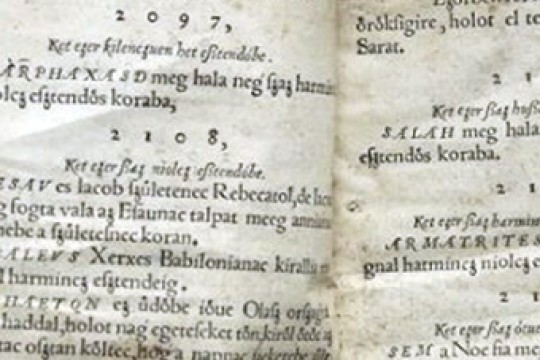 2 0 9 7,
Ket eʒer kilencʒuen het eſztendőbe.
ARPHAXASD meg hala neg ſʒaʒ harmin
niolcʒ eſʒtendős koraba,
2 1 0 8,
Ket eʒer ſʒaʒ niolcʒ eſʒtendőbe.
ESAV es Iacob ſʒületenec Rebecatol, de Iacob
fogta vala aʒ Eſaunac talpat meeg annian
mehebe a ſʒületeſnec koran.
BALEVS Xerxes Babilonianac kirallia
harmincʒ eſʒtendeig.
PHAETON eʒ üdőbe iőue Olaſʒ orſʒag
haddal, holot nag egeteſeket tőn, kiről
oſʒtan kőltec, hog a nappac
őrőkſigire, holot el te
Sarat.
2 1
Ket eʒer ſʒaʒ huſʒ
SALAH meg hala
eſʒtendős koraba.
2 1
Ket eʒer ſʒaʒ harmin
ARMATRITES
gnal harmincʒ niolcʒ e
2 1
Ket eʒer ſʒaʒ
SEM a Noe fia me